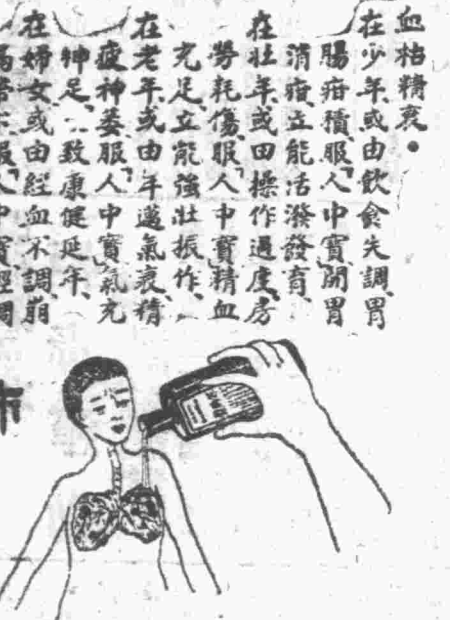 血枯精衰●
在少年或由飲食失調、胃
腸疳積、服「人中寶」開胃
消疳、立能活潑發育、
在壯年、或由操作過度、房
勞耗傷、服「人中寶」精血
充足、立能強壯振作、
在老年、或由年邁氣衰、精
疲神萎、服「人中寶」氣充
神足、致康健延年、
在婦女或由經血不調、崩
服「人中寶」經調